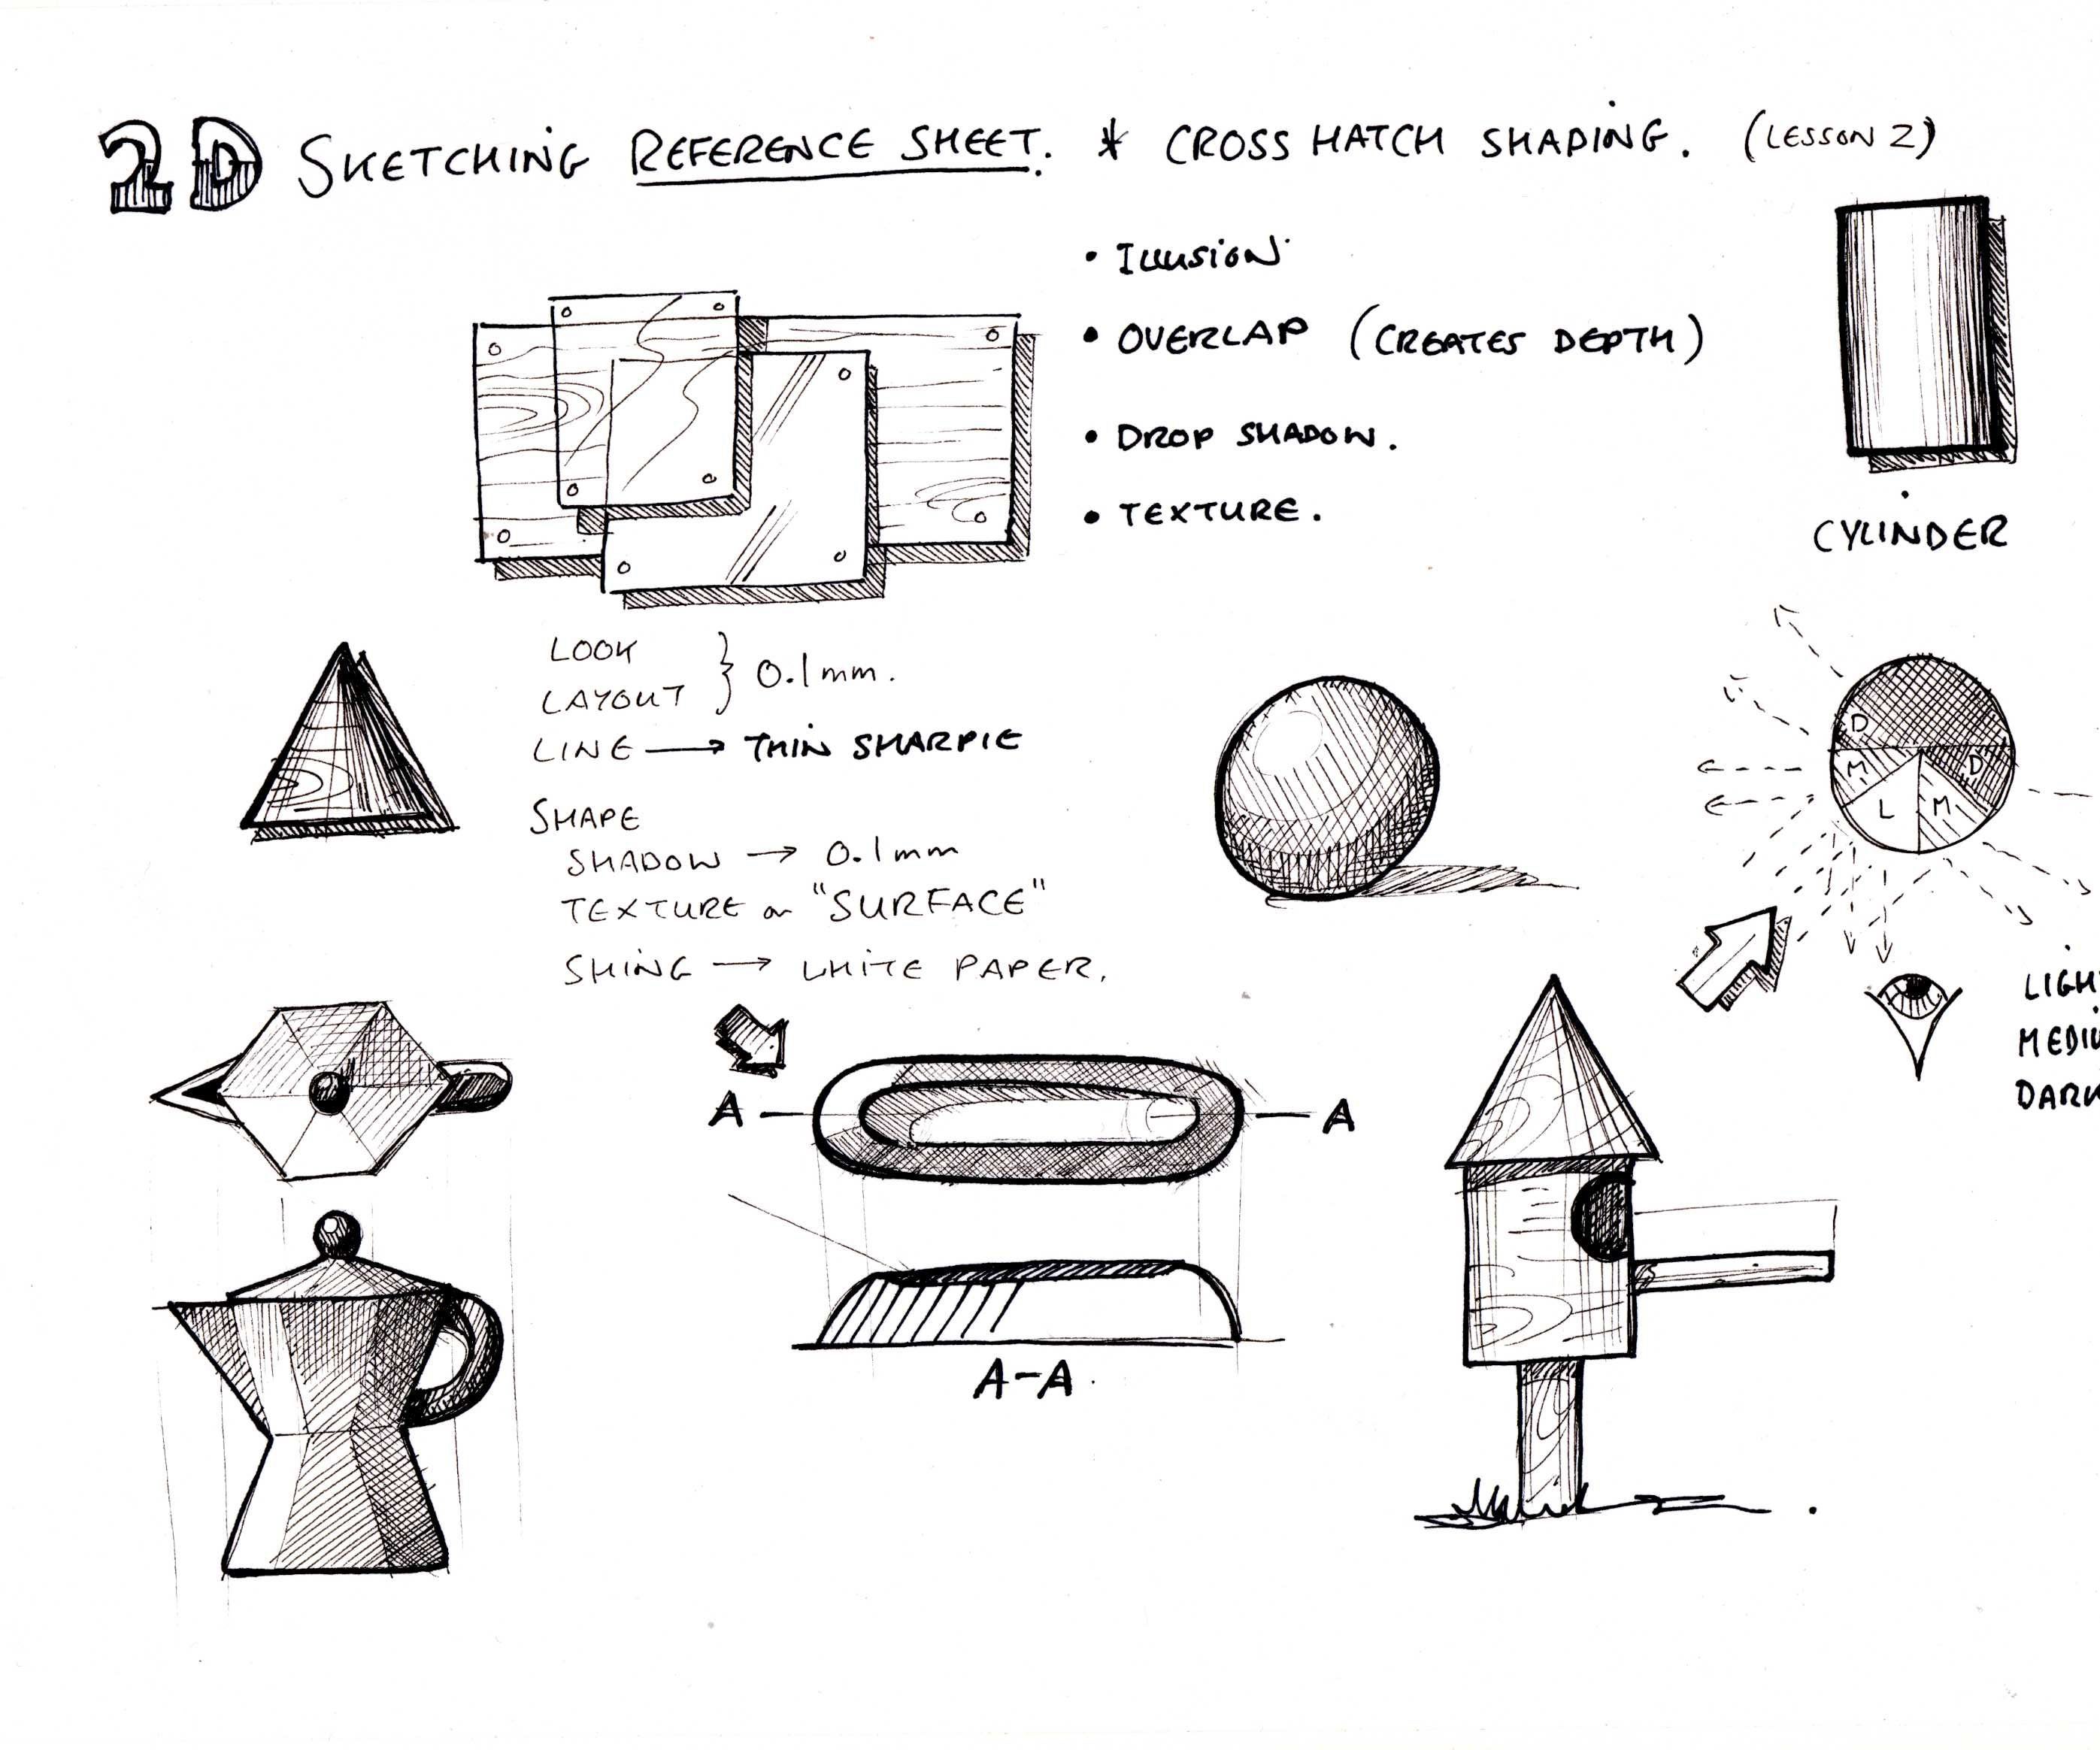 2D SKETCHING REFERENCE SHEET. * CROSS HATCH SHADING. (LESSON 2)
• ILLUSION
• OVERLAP (CREATES DEPTH)
• DROP SHADOW.
• TEXTURE.
CYLINDER
LOOK
LAYOUT } 0.1mm.
LINE → THIN SHARPIE
SHAPE
SHADOW → 0.1mm
TEXTURE or "SURFACE"
SHINE → WHITE PAPER.
D
M
L
M
D
LIGH
MEDIU
DARK
A
A
A-A